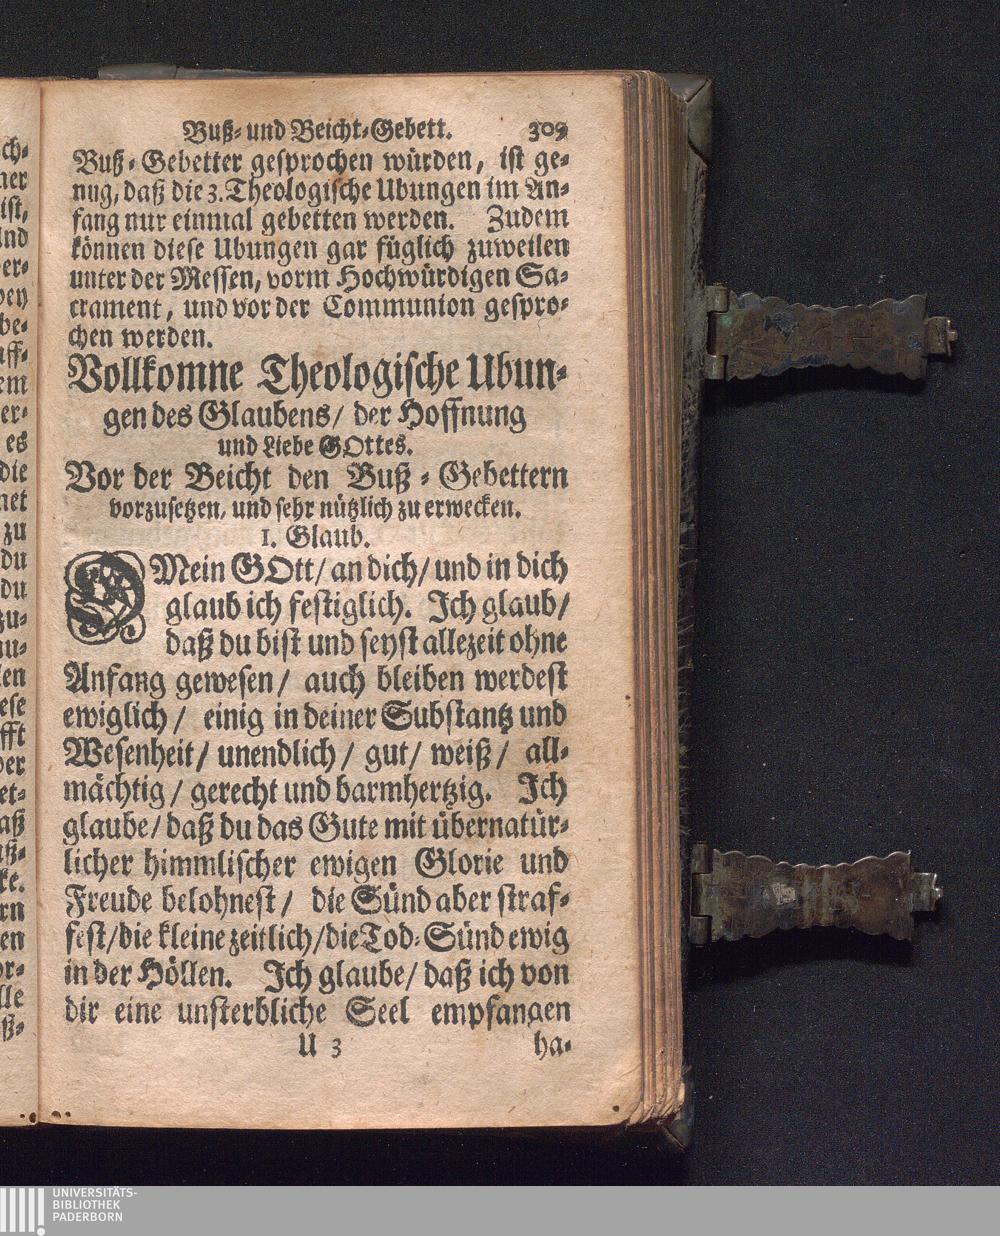 Buß- und Beicht-Gebett. 309
Buß-Gebetter gesprochen würden, ist ge-
nug, daß die 3. Theologische Ubungen im An-
fang nur einmal gebetten werden. Zudem
können diese Ubungen gar füglich zuweilen
unter der Messen, vorm Hochwürdigen Sa-
crament, und vor der Communion gespro-
chen werden.
Vollkomne Theologische Ubun-
gen des Glaubens/ der Hoffnung
und Liebe GOttes.
Vor der Beicht den Buß-Gebettern
vorzusetzen, und sehr nützlich zu erwecken.
1. Glaub.
O Mein GOtt/ an dich/ und in dich
glaub ich festiglich. Ich glaub/
daß du bist und seyst allezeit ohne
Anfang gewesen/ auch bleiben werdest
ewiglich/ einig in deiner Substantz und
Wesenheit/ unendlich/ gut/ weiß/ all-
mächtig/ gerecht und barmhertzig. Ich
glaube/ daß du das Gute mit übernatür-
licher himmlischer ewigen Glorie und
Freude belohnest/ die Sünd aber straf-
fest/ die kleine zeitlich/ die Tod-Sünd ewig
in der Höllen. Ich glaube/ daß ich von
dir eine unsterbliche Seel empfangen
U 3 ha-
ch-
ner
ist,
Ind
er-
ben
be-
aff-
em
er-
es
die
net
zu
du
du
zu-
nu-
ken
ese
fft
der
et-
aß
ß-
ke.
rn
en
or-
lle
ß-
UNIVERSITÄTS-
BIBLIOTHEK
PADERBORN